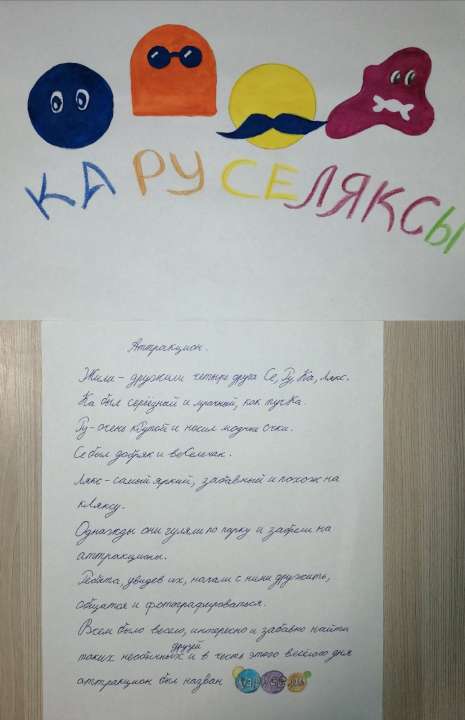 КАРУСЕЛЯКСЫ
Аттракцион.
Жили-дружили четыре друга Се, Ру, Ка, Лякс.
Ка был серьёзный и мрачный, как пусКа.
Ру-очень кРутой и носил модные очки.
Се был добряк и веСельчак.
Лякс-самый яркий, забавный и похож на
кЛяксу.
Однажды они гуляли по парку и зашли на
аттракционы.
Ребята, увидев их, начали с ними дружить,
общаться и фотографироваться.
Всем было весело, интересно и забавно найти
друзей
таких необычных и в честь этого веселого дня
аттракцион был назван